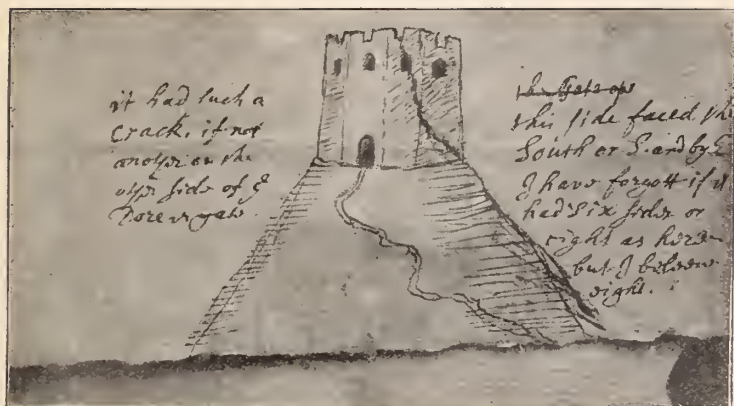 it had such a
Crack, if not
anoyr on the
oyr side of ye
Dore or gate.
the Gate or
this side faced th
South or S. and by E
I have forgott if it
had six sides or
eight as here
but I beleeve
eight.